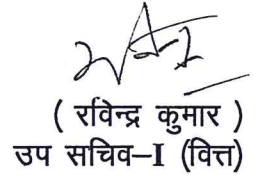 ( रविन्द्र कुमार )
उप सचिव–I (वित्त)